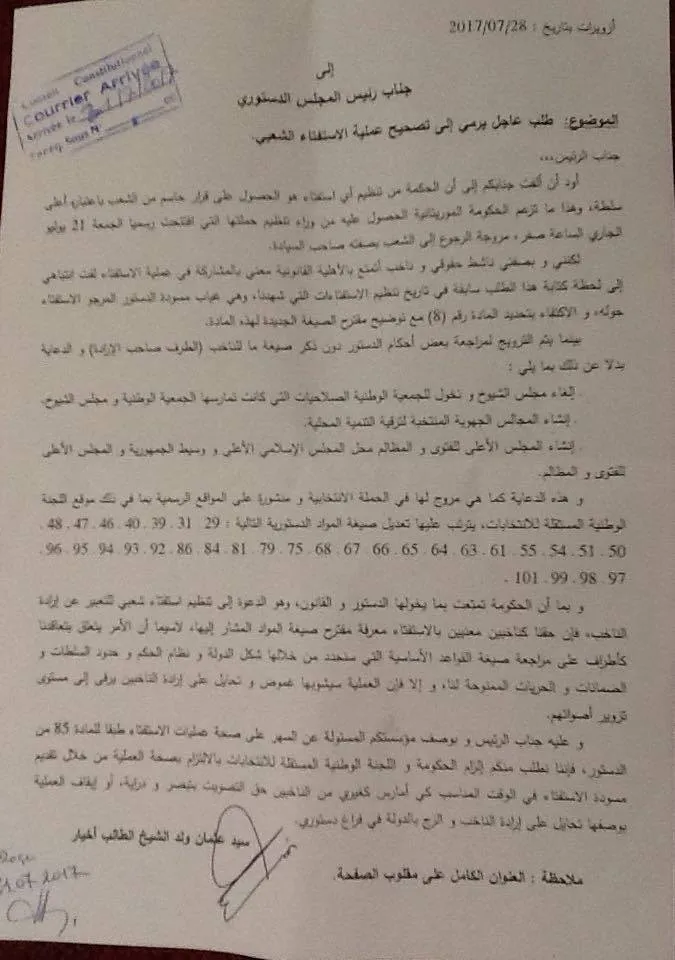 أزويرات بتاريخ : 2017/07/28
Conseil Constitutionnel
Courrier Arrivée
Arrivée le
Enreg. Sous N°
إلى
جناب رئيس المجلس الدستوري
الموضوع: طلب عاجل يرمي إلى تصحيح عملية الاستفتاء الشعبي.
جناب الرئيس...
أود أن ألفت جنابكم إلى أن الحكمة من تنظيم أي استفتاء هو الحصول على قرار حاسم من الشعب باعتباره أعلى
سلطة، وهذا ما تزعم الحكومة الموريتانية الحصول عليه من وراء تنظيم حملتها التي افتتحت رسميا الجمعة 21 يوليو
الجاري الساعة صفر، مروجة الرجوع إلى الشعب بصفته صاحب السيادة.
لكنني و بصفتي ناشط حقوقي و ناخب أتمتع بالأهلية القانونية معني بالمشاركة في عملية الاستفتاء لفت انتباهي
إلى لحظة كتابة هذا الطلب سابقة في تاريخ تنظيم الاستفتاءات التي شهدنا، وهي غياب مسودة الدستور المرجو الاستفتاء
حوله، و الاكتفاء بتحديد المادة رقم (8) مع توضيح مقترح الصيغة الجديدة لهذه المادة.
بينما يتم الترويج لمراجعة بعض أحكام الدستور دون ذكر صيغة ما للناخب (الطرف صاحب الإرادة) و الدعاية
بدلا عن ذلك بما يلي :
. إلغاء مجلس الشيوخ و تخول للجمعية الوطنية الصلاحيات التي كانت تمارسها الجمعية الوطنية و مجلس الشيوخ.
. إنشاء المجالس الجهوية المنتخبة لترقية التنمية المحلية.
. إنشاء المجلس الأعلى للفتوى و المظالم محل المجلس الإسلامي الأعلى و وسيط الجمهورية و المجلس الأعلى
للفتوى و المظالم.
و هذه الدعاية كما هي مروج لها في الحملة الانتخابية و منشورة على المواقع الرسمية بما في ذلك موقع اللجنة
الوطنية المستقلة للانتخابات، يترتب عليها تعديل صيغة المواد الدستورية التالية : 29 . 31 . 39 . 40 . 46 . 47 . 48 .
50 . 51 . 54 . 55 . 61 . 63 . 64 . 65 . 66 . 67 . 68 . 75 . 79 . 81 . 84 . 86 . 92 . 93 . 94 . 95 . 96 .
97 . 98 . 99 . 101 .
و بما أن الحكومة تمتعت بما يخولها الدستور و القانون، وهو الدعوة إلى تنظيم استفتاء شعبي للتعبير عن إرادة
الناخب، فإن حقنا كناخبين معنيين بالاستفتاء معرفة مقترح صيغة المواد المشار إليها، لاسيما أن الأمر يتعلق بتعاقدنا
كأطراف على مراجعة صيغة القواعد الأساسية التي سنحدد من خلالها شكل الدولة و نظام الحكم و حدود السلطات و
الضمانات و الحريات الممنوحة لنا، و إلا فإن العملية سيشوبها غموض و تحايل على إرادة الناخبين يرقى إلى مستوى
تزوير أصواتهم.
و عليه جناب الرئيس و بوصف مؤسستكم المسئولة عن السهر على صحة عمليات الاستفتاء طبقا للمادة 85 من
الدستور، فإننا نطلب منكم إلزام الحكومة و اللجنة الوطنية المستقلة للانتخابات بالالتزام بصحة العملية من خلال تقديم
مسودة الاستفتاء في الوقت المناسب كي أمارس كغيري من الناخبين حق التصويت بتبصر و دراية، أو إيقاف العملية
بوصفها تحايل على إرادة الناخب و الزج بالدولة في فراغ دستوري.
سيد عثمان ولد الشيخ الطالب أخيار
ملاحظة : العنوان الكامل على مقلوب الصفحة.